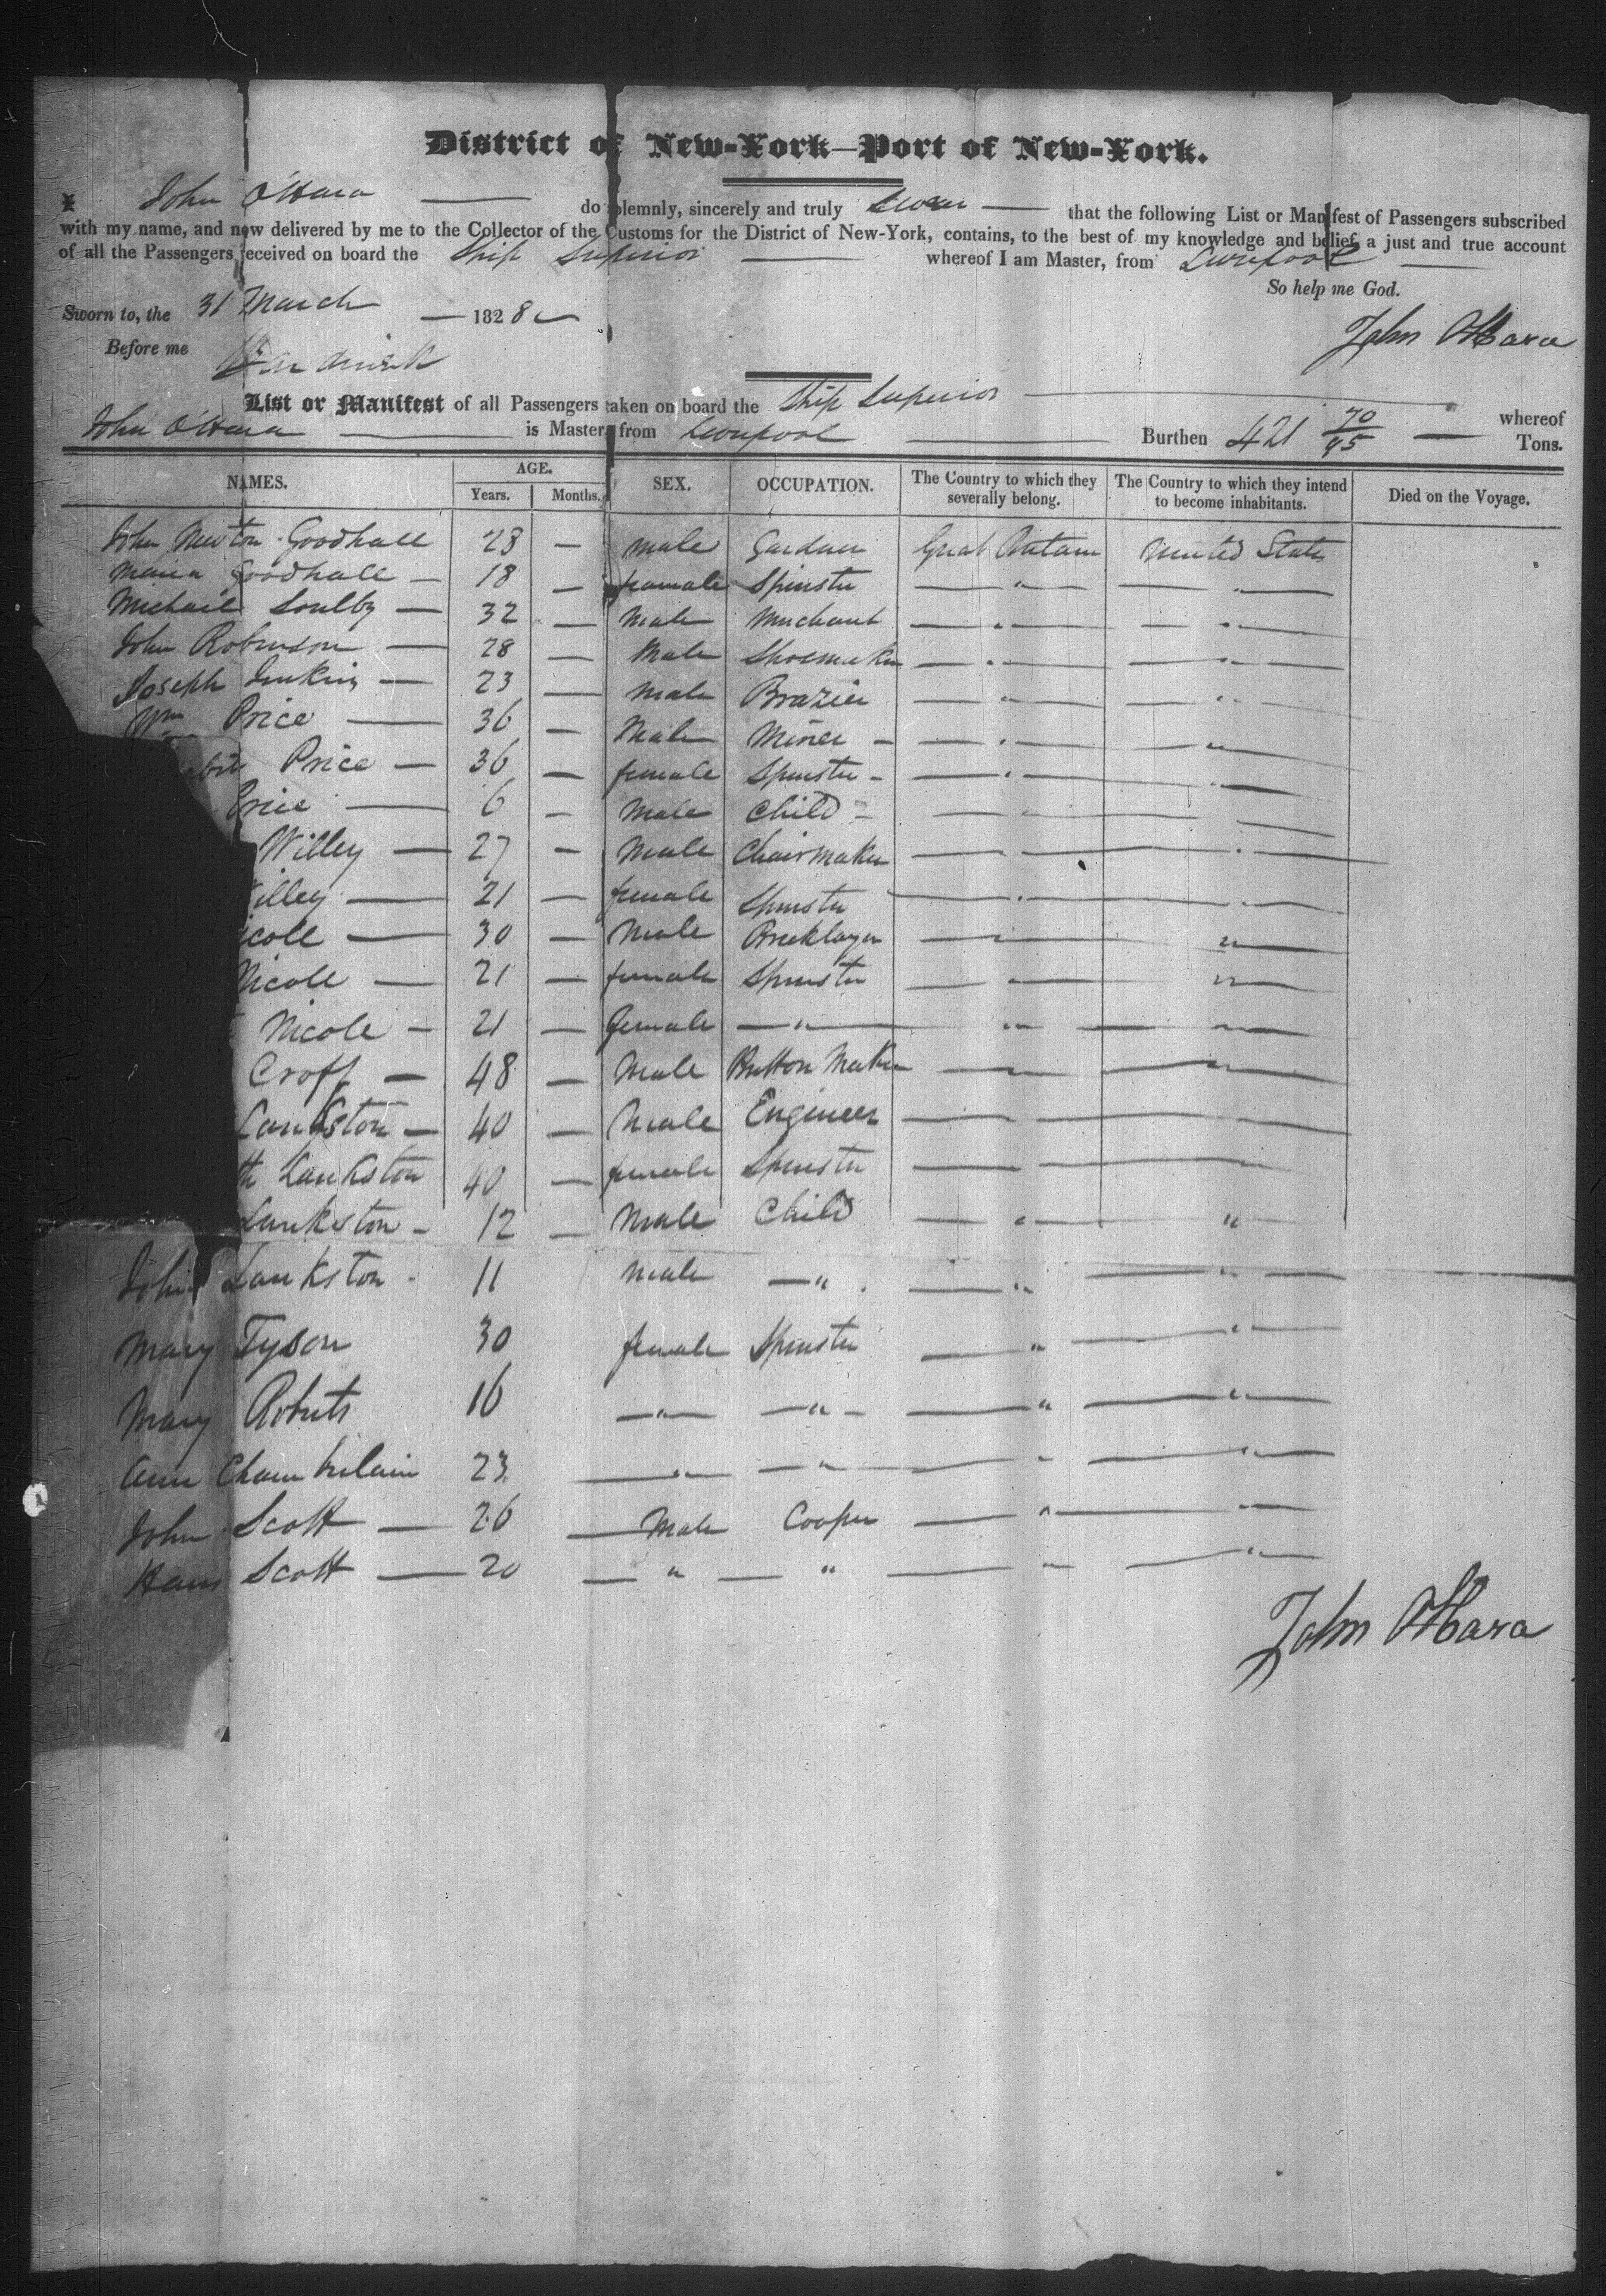 District of New-York—Port of New-York.
I John O'Hara — do solemnly, sincerely and truly swear — that the following List or Manifest of Passengers subscribed
with my name, and now delivered by me to the Collector of the Customs for the District of New-York, contains, to the best of my knowledge and belief, a just and true account
of all the Passengers received on board the Ship Superior — whereof I am Master, from Liverpool —
So help me God.
Sworn to, the 31 March — 1828
John O'Hara
Before me
List or Manifest of all Passengers taken on board the Ship Superior — whereof
John O'Hara — is Master, from Liverpool — Burthen 421 70/95 — Tons.
NAMES. AGE. Years. Months. SEX. OCCUPATION. The Country to which they severally belong. The Country to which they intend to become inhabitants. Died on the Voyage.
John Newton Goodhall 28 — male Gardner Great Britain United States
Maria Goodhall — 18 — feamale Spinster — " — — " —
Michael Soulby — 32 — Male Merchant — " — — " —
John Robinson — 28 — Male Shoemaker — " — — " —
Joseph Jenkins — 23 — Male Brazier — " — — " —
Wm Price — 36 — Male Miner — — " — — " —
Price — 36 — female Spinster — — " — — " —
Price — 6 — Male Child — — " — — " —
Willey — 27 — Male Chairmaker — " — — " —
illey — 21 — female Spinster — " — — " —
icole — 30 — Male Bricklayer — " — " —
Nicole — 21 — female Spinster — " — " —
Nicole — 21 — female — " — — " — — " —
Croft — 48 — Male Button Maker — " — — " —
Lankston — 40 — Male Engineer — " — — " —
th Lankston 40 — female Spinster — " — — " —
Lankston — 12 — Male Child — " — "
John Lankston 11 male — " — " — " —
Mary Tyson 30 female Spinster — " — " —
Mary Roberts 16 — " — — " — — " — " —
Ann Chamberlain 23 — " — — " — — " — " —
John Scott — 26 — Male Cooper — " — " —
Scott — 20 — " — " — " — " —
John O'Hara